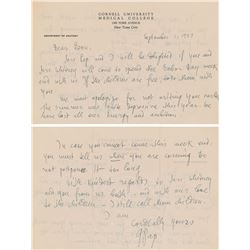 CORNELL UNIVERSITY
MEDICAL COLLEGE
1300 YORK AVENUE
New York City
DEPARTMENT OF ANATOMY
September 1, 1937
Dear Dora:
and I will be delighted if you and
will come to spend the Labor Day week
end with us. If the children are free bring them with
you.
We must apologize for not writing you earlier,
the summer was quite this year
at least for our energy and ambition.
In case you cannot come this week end,
you must tell us when you are coming. Do
not postpone it too long.
With kindest regards, to
and you from us both, and with our love
to the children — I still call them children.
I am
Cordially yours